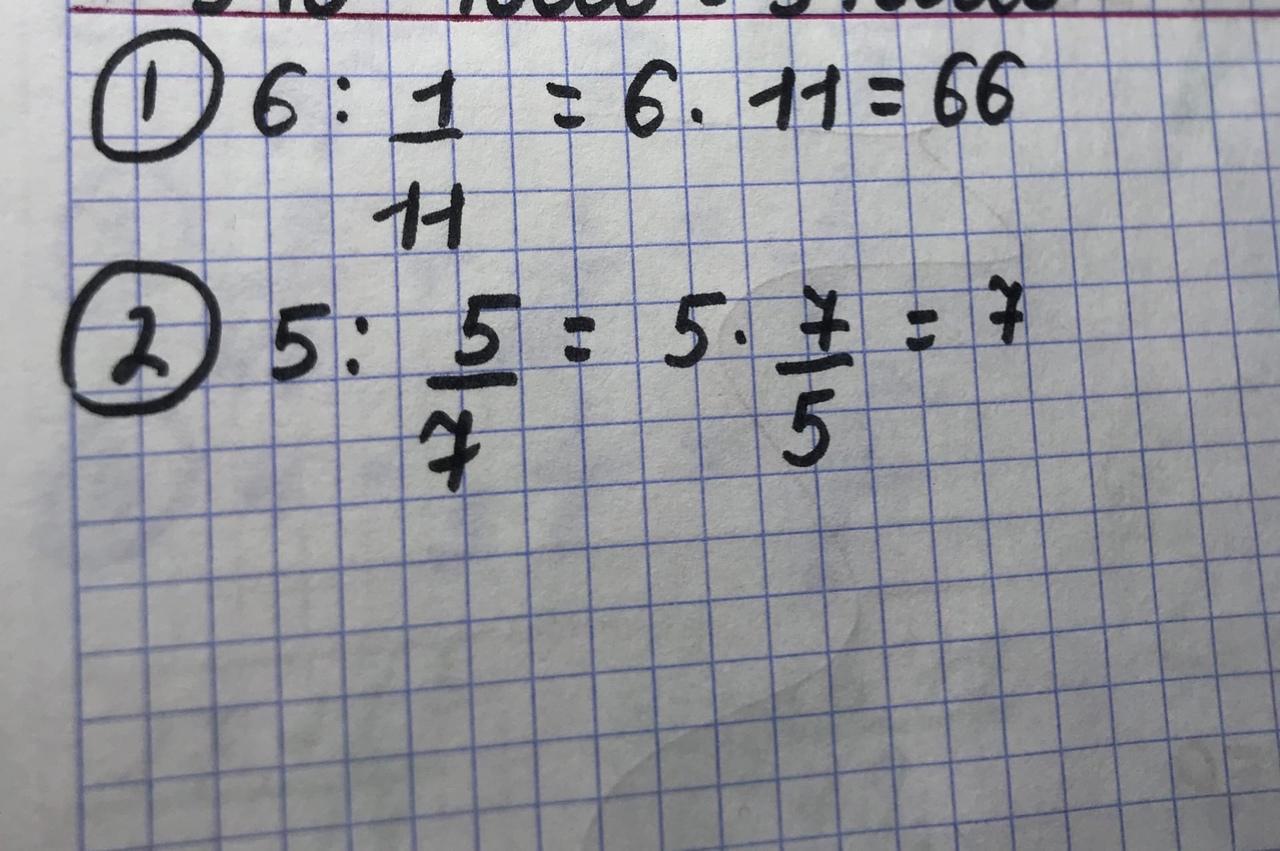 ① 6 : 1/11 = 6 · 11 = 66
② 5 : 5/7 = 5 · 7/5 = 7